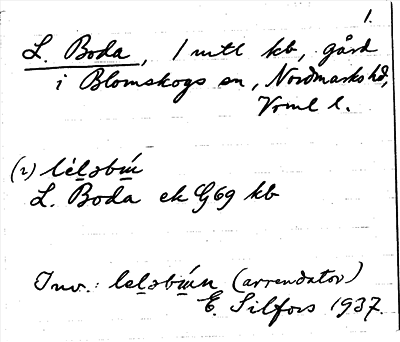 1.
L. Boda, 1 mtl kb, gård
i Blomskogs sn, Nordmarks hd,
Vrml l.
L. Boda ek G69 kb
Inv.: (arrendator)
E. Silfors 1937.